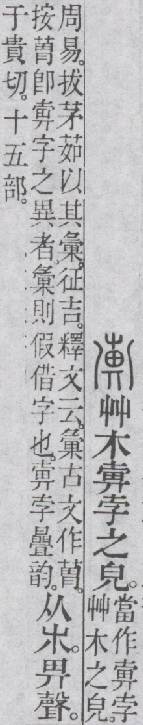 艸木𡴆孛之皃。
當作𡴆孛
艸木之皃。
周易。拔茅茹以其彙。征吉。釋文云。彙古文作。
按卽𡴆字之異者。彙則假借字也。𡴆孛疊韵。
从𣎵。畀聲。
于貴切。十五部。